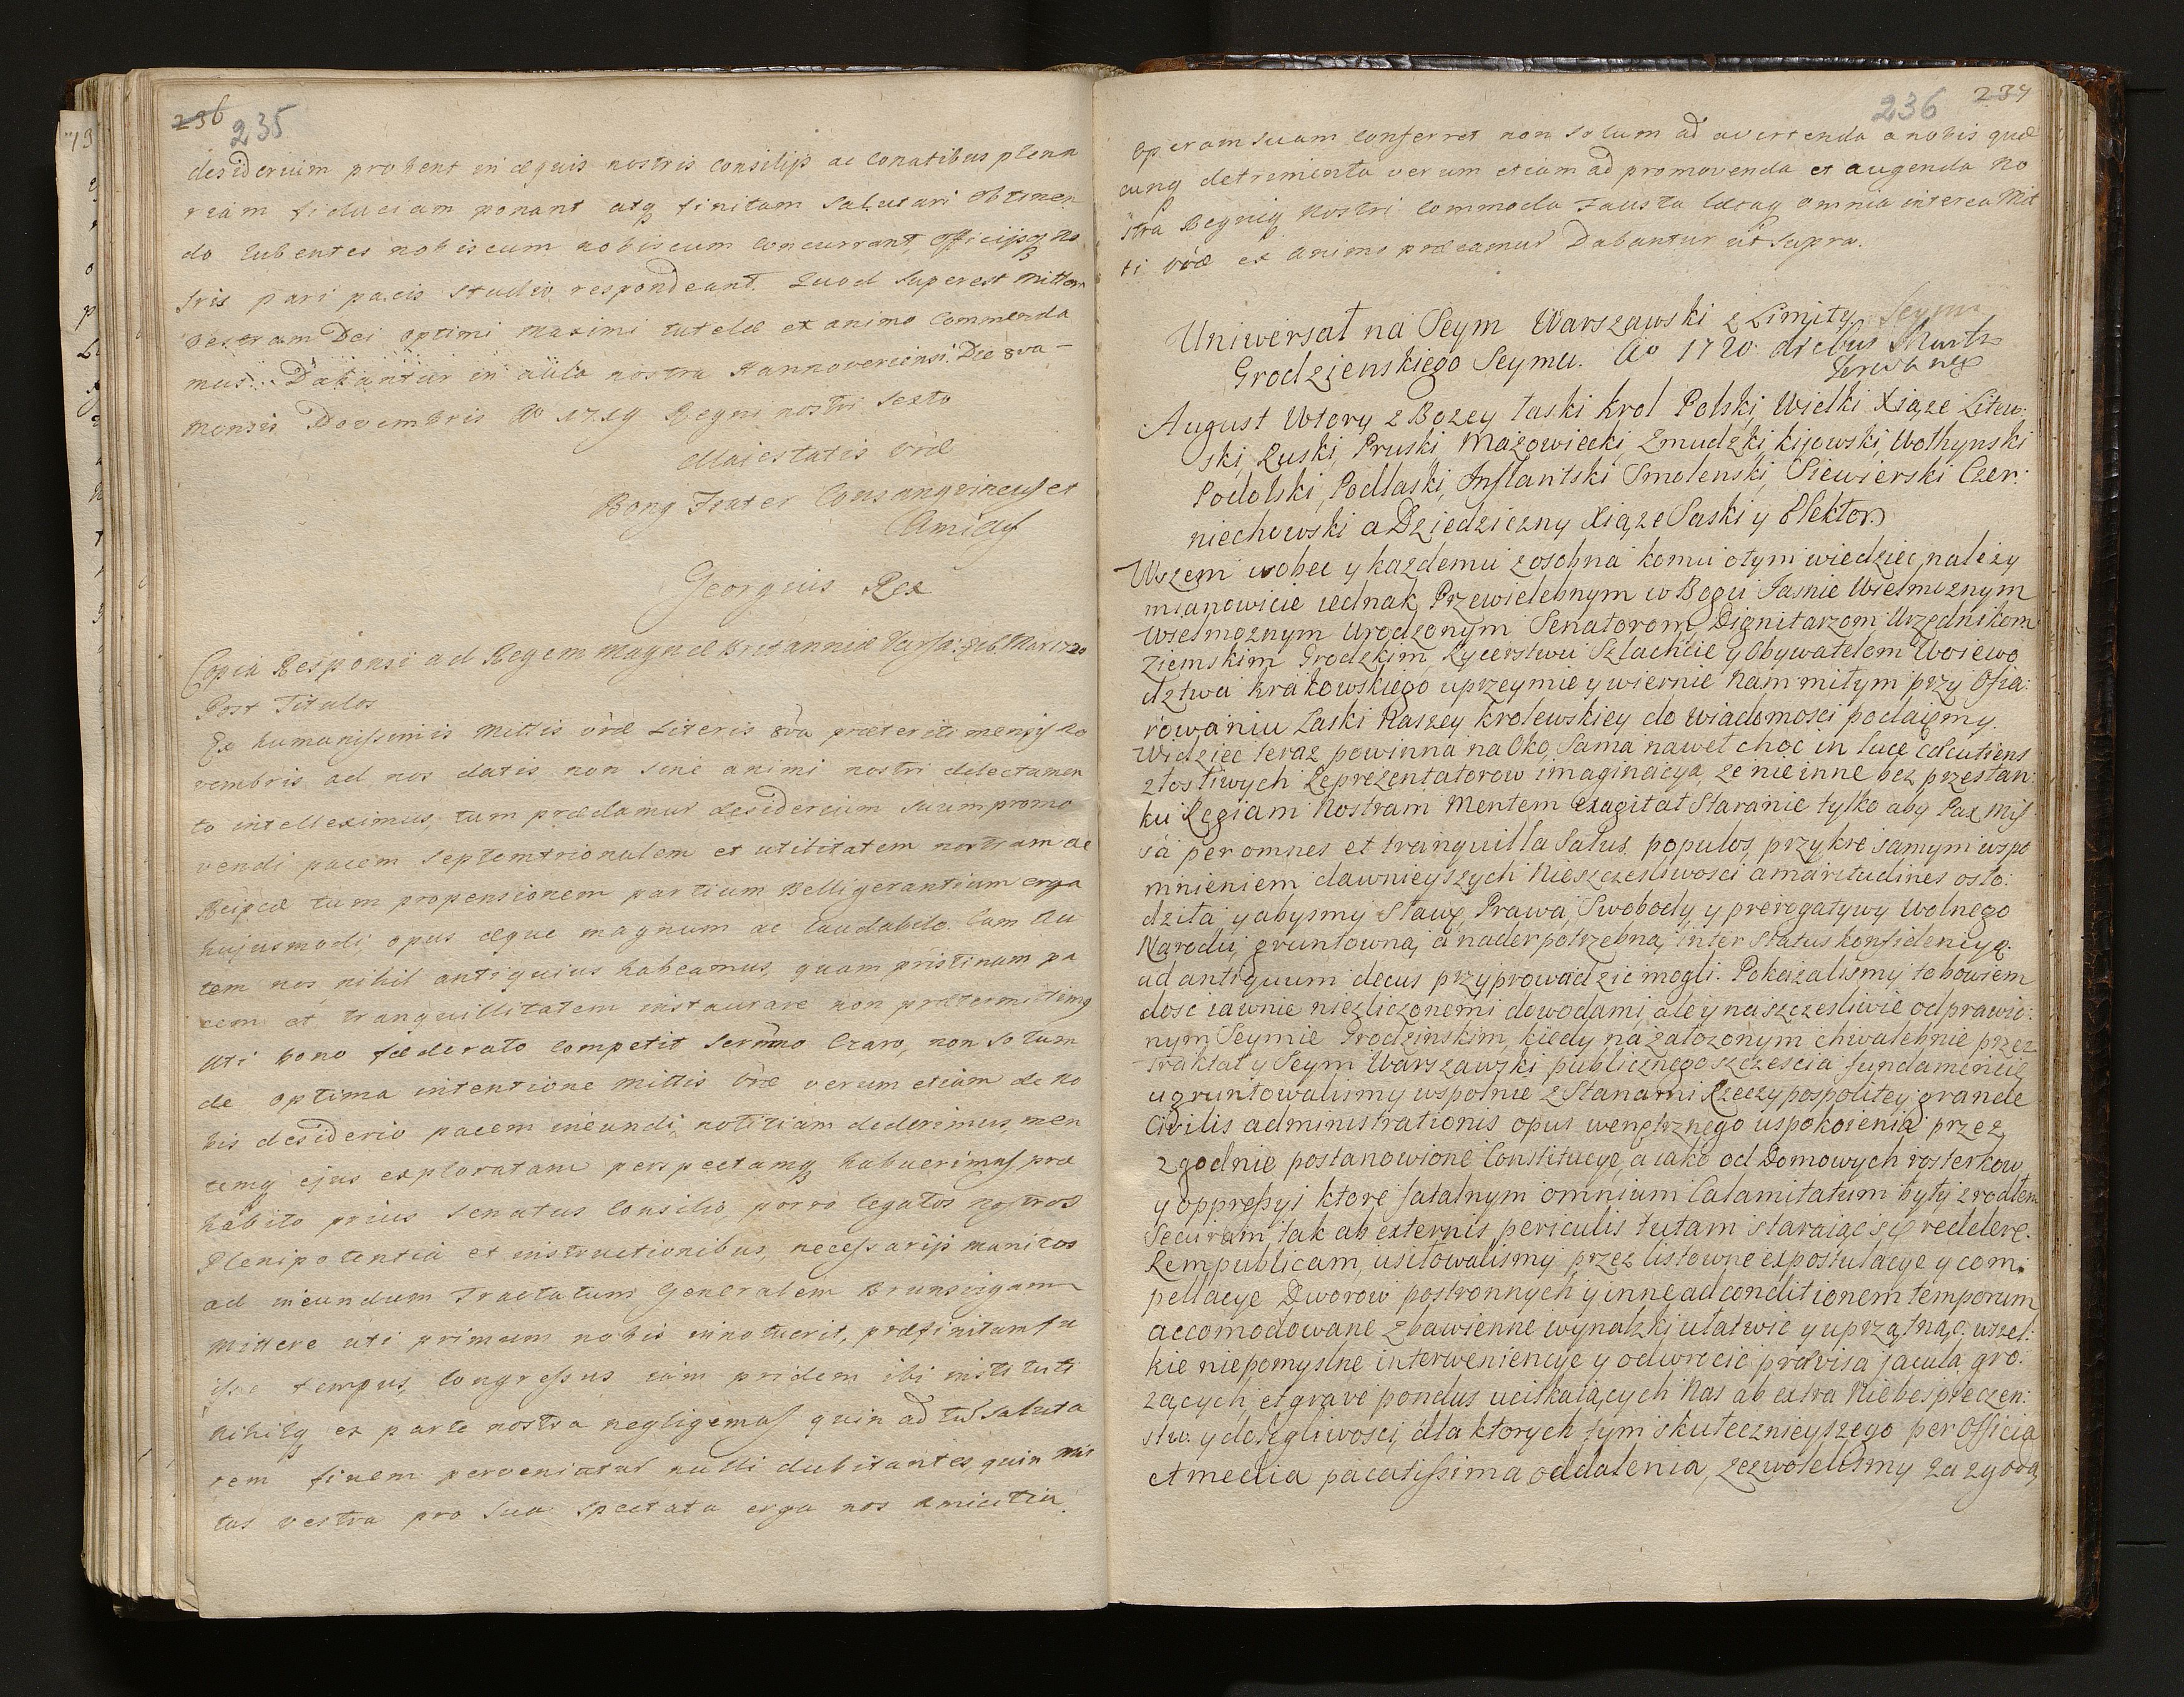 236 235
desiderium probent in æquis nostris Consilijs ac Conatibus plena
riam fiduciam ponant atq finitam Salutari Obtinen
do lubentes nobiscum nobiscum Concurrant, Officijsq No
stris pari pacis Studio respondeant. Quod Superest Mittem
Vestram Dei Optimi Maximi tutelæ ex animo Commenda
mus. Dabantur in aula nostra Hannoverensi. Die 8va
Mensis Novembris Ao 1719 Regni nostri Sexto
Maiestatis Vræ
Bonq Frater Consangvineus et
Amicus
Georgius Rex
Copia Responsi ad Regem Magnæ Britanniæ Varsa: Mar 1720
Post Titulos
Ex humanissimis Mttis vræ Literis 8va præteriti mensis No
vembris ad nos datis non sine animi nostri delectamen
to intelleximus, tum præclamus desiderium suum promo
vendi pacem Septemtrionalem et utilitatem nostram ac
Reipcæ tum propensionem partium Belligerantium erga
hujusmodi opus æque magnum ac laudabile. Cum Au
tem nos nihil antiquius habeamus, quam pristinam pa
cem et tranquillitatem instaurare non prætermittimq
Uti bono fæderato competit Sermo Czaro, non solum
de optima intentione Mttis Vræ verum etiam de No
bis desiderio pacem ineundi notitiam dederimus, men
temq ejus exploratam perspectamq habuerimus præ
habito prius Senatus Consilio, porro legatos nostros
Plenipotentia et instructionibus necessarijs munitos
ad ineundum Tractatum Generalem Brunsvigam
Mittere uti primum nobis innotuerit, præfinitum fu
isse tempus Congressus iam pridem ibi instituti
Nihilq ex parte nostra negligemus quin ad tus Saluta
rem finem perveniatur nulli dubitantes, quin Mtt
tas vestra pro Sua Spectata erga nos amicitia
236 237
Operam Suam Conferret non Solum ad avertenda a nobis quæ
cunq detrimenta verum etiam ad promovenda et augenda No
stra Regniq Nostri Commoda Fausta lætaq omnia interea Mtt
ti Vræ ex animo præcamur Dabantur ut Supra.
Uniwersał na Seym Warszawski z Limity Seym
Grodzienskiego Seymu. Ao 1720 diebus Martz
August Wtory z Bozey łaski Krol Polski, Wielki Xiąze Litew:
ski, Ruski, Pruski, Mazowiecki, Zmudzki, Kijowski, Wołhynski
Podolski, Podlaski, Inflantski Smolenski, Siewierski Czer:
niechowski a Dziedziczny Xiąze Saski y Elektor.
Wszem wobec y kazdemu zosobna komu otym wiedziec nalezy
mianowicie iednak Przewielebnym w Bogu Jasnie Wielmoznym
Wielmoznym Urodzonym Senatorom, Dignitarzom Urzędnikom
Ziemskim Grodzkim, Rycerstwu Szlachcie y Obywatelom Woiewo
dztwa Krakowskiego uprzeymie y wiernie Nam miłym przy Ofia:
rowaniu Łaski Naszey Krolewskiey do Wiadomosci podaięmy.
Widziec teraz powinna na Oko, Sama nawet choc in luce cæcutiens
złosliwych Reprezentatorow imaginacya, ze nie inne bez przestan:
ku Regiam Nostram Mentem exagitat Staranie tylko aby Pax Mis
sa per omnes et tranquilla Salus populos, przykre samym wspo
mnieniem dawnieyszych Nieszczesliwosci amaritudines osło:
dziła y abysmy Sławę, Prawa, Swobody y prerogatywy Wolnego
Narodu, gruntowną a nader potrzebną inter Status konfidencyą
ad antiquum decus przyprowadzic mogli. Pokazalismy to bowiem
dosc iawnie niezliczonemi dowodami, ale y na szczesliwie odprawio:
nym Seymie Grodzinskim, kiedy na załozonym chwalebnie przez
Traktat y Seym Warszawski publicznego szczescia fundamencie
ugruntowalismy wspolnie z Stanami Rzeczypospolitey grande
Civilis administrationis opus wenętrznego uspokoienia przez
zgodnie postanowione Constitucye, a iako od Domowych rosterkow
y oppressyi ktore fatalnym omnium Calamitatum były zrodłem
Securam, tak ab externis periculis tutam staraiąc się reddere
Rempublicam, usiłowalismy przez listowne expostulacye y com:
pellacye Dworow postronnych y inne ad conditionem temporum
accomodowane zbawienne wynalazki ułatwic y uprzątnąc wszel:
kie niepomyslne interweniencye y odwrocic prævisa jacula gro:
zących, et grave pondus uciskaiących Nas ab extra Niebespieczen:
stw. y dolegliwosci, dla ktorych tym skutecznieyszego per Officia
et media pacatissima oddalenia, zezwolelismy za zgodą